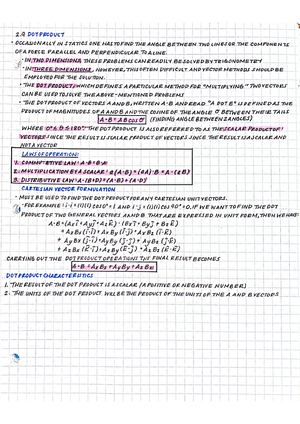 2.9 DOT PRODUCT
• OCCASIONALLY IN STATICS ONE HAS TO FIND THE ANGLE BETWEEN TWO LINES OR THE COMPONENTS
OF A FORCE PARALLEL AND PERPENDICULAR TO A LINE.
• IN TWO DIMENSIONS THESE PROBLEMS CAN READILY BE SOLVED BY TRIGONOMETRY
• IN THREE DIMENSIONS, HOWEVER, THIS OFTEN DIFFICULT AND VECTOR METHODS SHOULD BE
EMPLOYED FOR THE SOLUTION.
• THE DOT PRODUCT, WHICH DEFINES A PARTICULAR METHOD FOR "MULTIPLYING" TWO VECTORS
CAN BE USED TO SOLVE THE ABOVE-MENTIONED PROBLEMS
• THE DOT PRODUCT OF VECTORS A AND B, WRITTEN A·B AND READ "A DOT B" IS DEFINED AS THE
PRODUCT OF MAGNITUDES OF A AND B AND THE COSINE OF THE ANGLE θ BETWEEN THEIR TAILS
A·B = AB cos θ (FINDING ANGLE BETWEEN 2 ANGLES)
WHERE 0° ≤ θ ≤ 180°. THE DOT PRODUCT IS ALSO REFERRED TO AS THE SCALAR PRODUCT OF
VECTORS SINCE THE RESULT IS A SCALAR AND
NOT A VECTOR
LAWS OF OPERATION:
1. COMMUTATIVE LAW: A·B = B·A
2. MULTIPLICATION BY A SCALAR: a(A·B) = (aA)·B = A·(aB)
3. DISTRIBUTIVE LAW: A·(B+D) = (A·B) + (A·D)
CARTESIAN VECTOR FORMULATION
• MUST BE USED TO FIND THE DOT PRODUCT FOR ANY CARTESIAN UNIT VECTORS.
IF WE WANT TO FIND THE DOT
PRODUCT OF TWO GENERAL VECTORS A AND B THAT ARE EXPRESSED IN UNIT FORM, THEN WE HAVE:
CARRYING OUT THE DOT PRODUCT OPERATIONS THE FINAL RESULT BECOMES
A·B = AxBx + AyBy + AzBz
DOT PRODUCT CHARACTERISTICS
1. THE RESULT OF THE DOT PRODUCT IS A SCALAR (A POSITIVE OR NEGATIVE NUMBER)
2. THE UNITS OF THE DOT PRODUCT WILL BE THE PRODUCT OF THE UNITS OF THE A AND B VECTORS